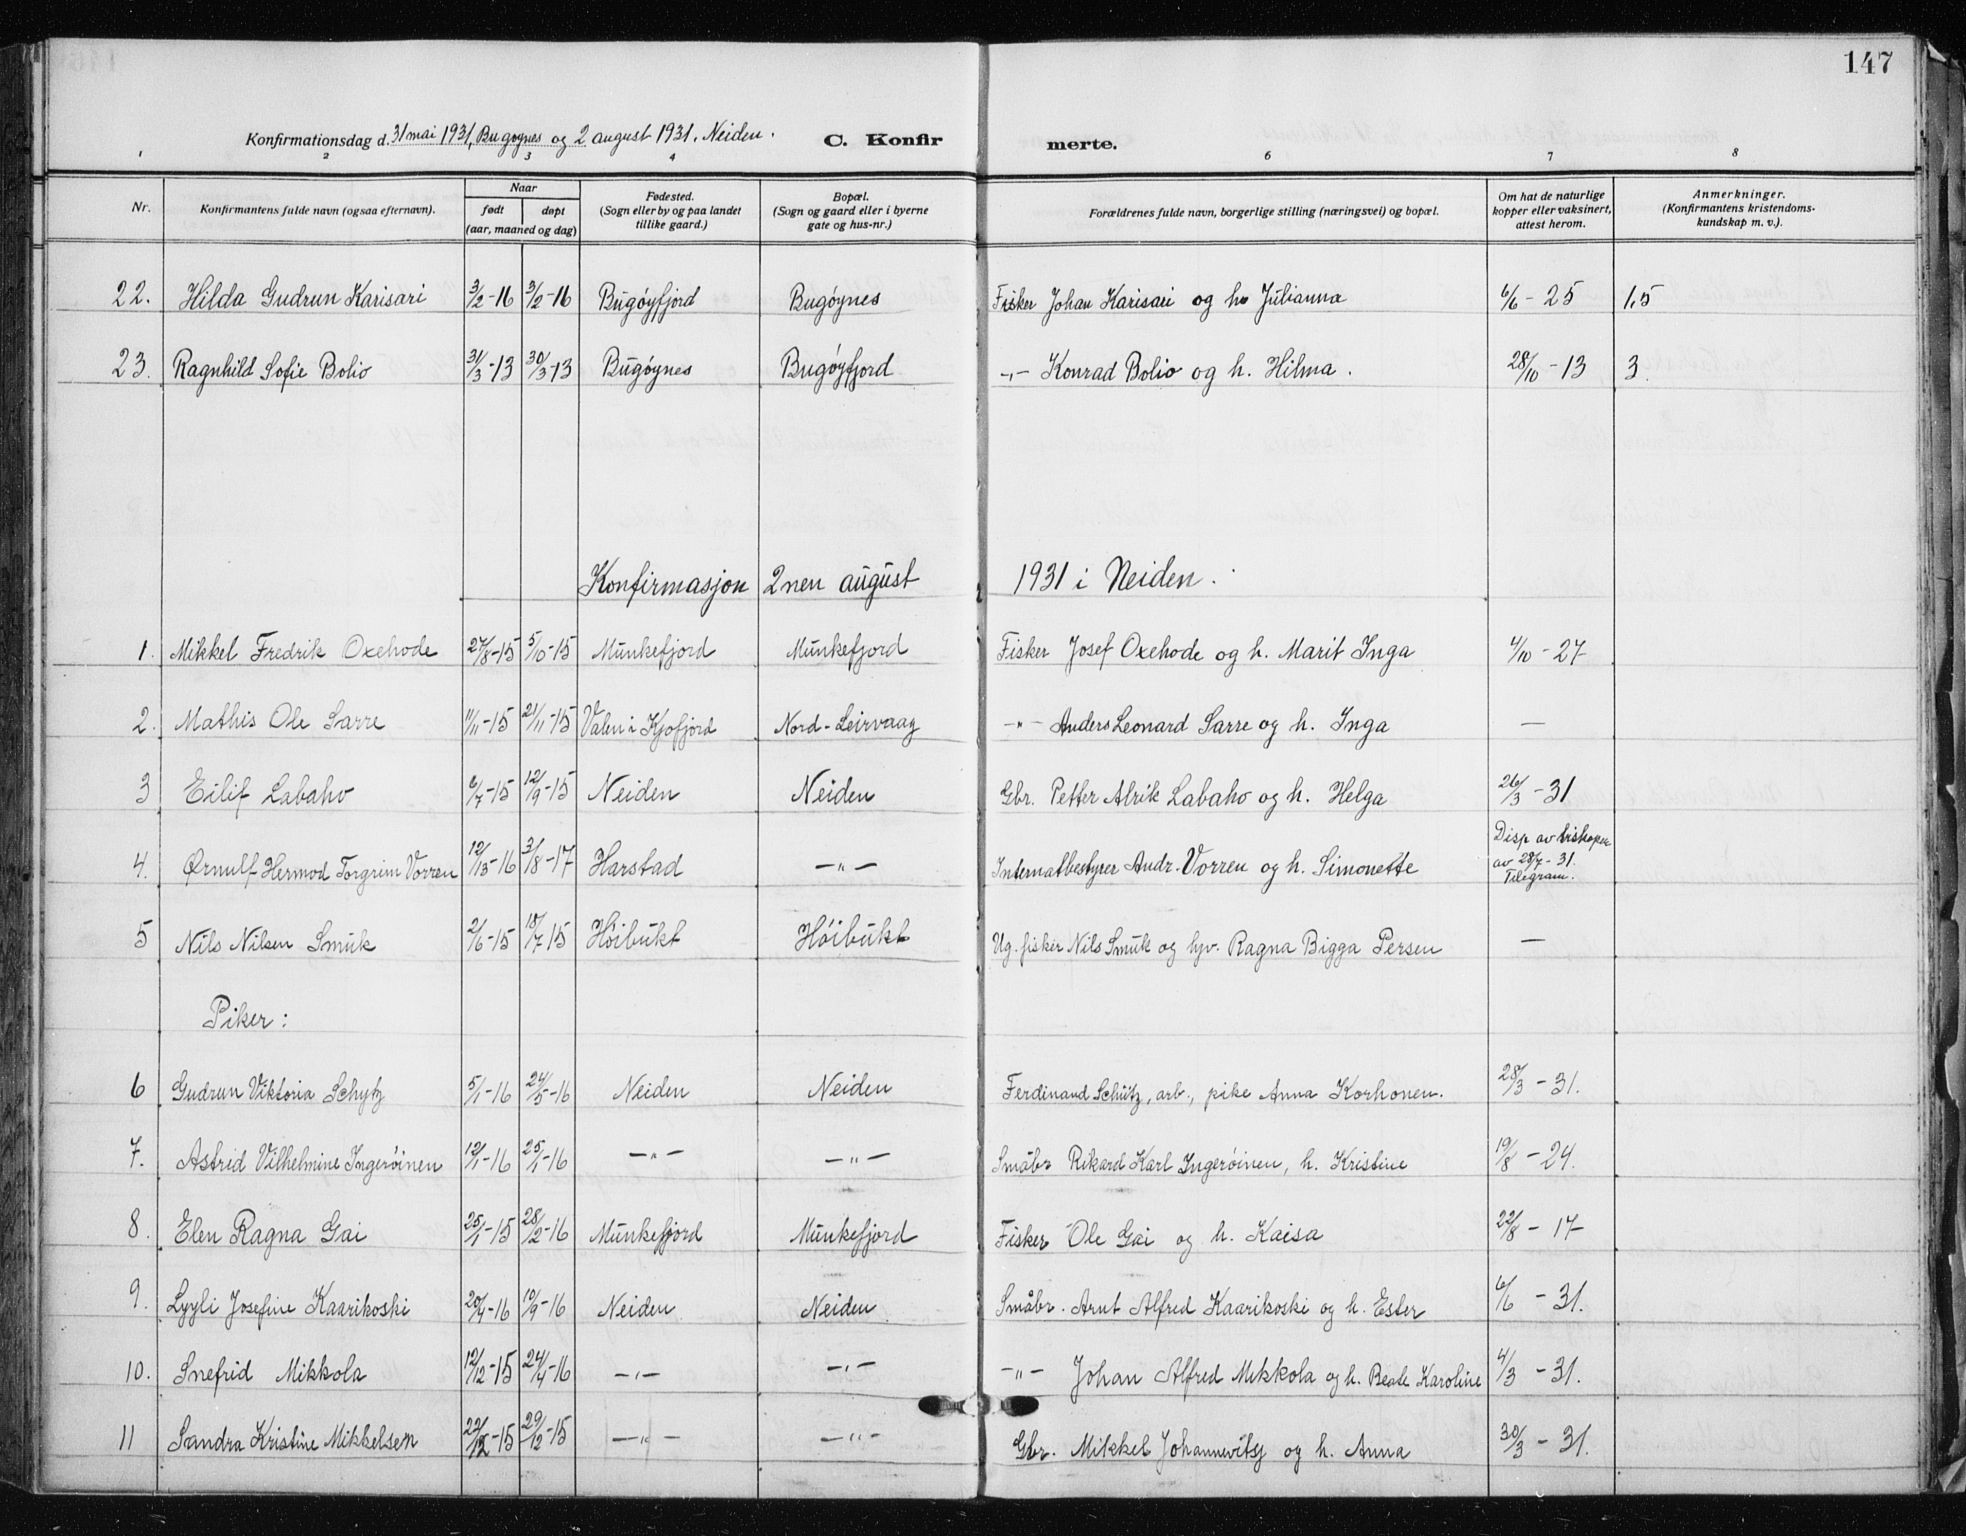 147
Konfirmationsdag d. 31 mai 1931, Bugøynes og 2 august 1931, Neiden. C. Konfir merte.
1 2 3 4 6 7 8
Nr. Konfirmantens fulde navn (ogsaa efternavn). Naar født døpt (aar, maaned og dag) Fødested. (Sogn eller by og paa landet tillike gaard.) Bopæl. (Sogn og gaard eller i byerne gate og hus-nr.) Forældrenes fulde navn, borgerlige stilling (næringsvei) og bopæl. Om hat de naturlige kopper eller vaksinert, attest herom. Anmerkninger. (Konfirmantens kristendoms-kundskap m. v.).
22. Hilda Gudrun Karisari 3/2-16 3/2-16 Bugøyfjord Bugøynes Fisker Johan Karisari og h. Julianna 6/6-25 1,5
23. Ragnhild Sofie Bolio 31/3-13 30/3-13 Bugøynes Bugøyfjord -"- Konrad Bolio og h. Hilma. 28/10-13 3.
Konfirmasjon 2nen august 1931 i Neiden.
1. Mikkel Fredrik Oxehode 27/8-15 5/10-15 Munkefjord Munkefjord Fisker Josef Oxehode og h. Marit Inga 4/10-27
2. Mathis Ole Sarre 11/11-15 21/11-15 Valen i Kjofjord Nord-Leirvaag -"- Anders Leonard Sarre og h. Inga —
3 Eilif Labaho 6/7-15 12/9-15 Neiden Neiden Gbr. Petter Alrik Labaho og h. Helga 26/3-31
4. Ørnulf Hermod Torgrim Vorren 12/13-16 3/8-17 Harstad -"- Internatbestyrer Andr. Vorren og h. Simonette Disp av biskopen av 28/7-31. Telegram.
5 Nils Nilsen Smuk 2/6-15 18/7-15 Høibukt Høibukt Ug. fisker Nils Smuk og hjv. Ragna Bigga Persen —
Piker:
6 Gudrun Viktoria Schytz 5/1-16 24/5-16 Neiden Neiden Ferdinand Schütz, arb., pike Anna Korhonen. 28/3-31.
7. Astrid Vilhelmine Ingerøinen 12/1-16 25/1-16 -"- -"- Småbr Rikard Karl Ingerøinen, h. Kristine 19/8-24.
8. Elen Ragna Gai 25/1-15 28/2-16 Munkefjord Munkefjord Fisker Ole Gai og h. Kaisa 22/8-17
9. Lyyli Josefine Kaarikoski 20/4-16 10/9-16 Neiden Neiden Småbr. Arnt Alfred Kaarikoski og h. Ester 6/6-31.
10. Snefrid Mikkola 12/12-15 24/4-16 -"- -"- -"- Johan Alfred Mikkola og h. Beate Karoline 4/3-31.
11 Sandra Kristine Mikkelsen 22/12-15 29/12-15 -"- -"- Gbr. Mikkel Johannevitsj og h. Anna 30/3-31.